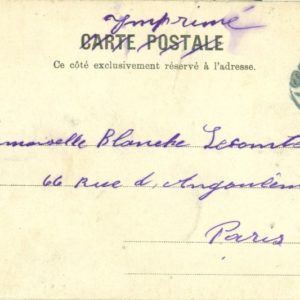 Imprimé
CARTE POSTALE
Ce côté exclusivement réservé à l'adresse.
moiselle Blanche Lecomte
66 Rue d'Angoulêm
Paris